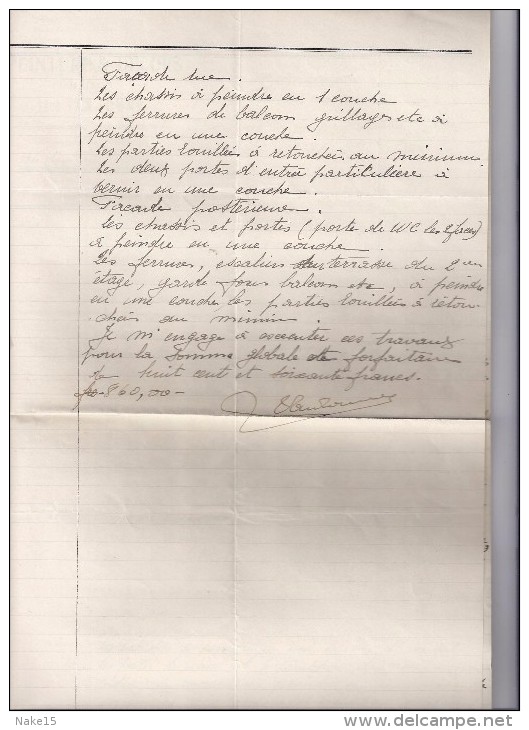 Facade rue.
Les chassis à peindre en 1 couche
Les ferrures de balcon grillages etc à
peindre en une couche.
Les parties rouillées à retoucher au minium.
Les deux portes d'entrée particulière à
vernir en une couche.
Facade postérieure.
Les chassis et portes (porte de WC les 2 faces)
à peindre en une couche.
Les ferrures, escaliers terrasse du 2me
étage, garde fous balcons etc, à peindre
en une couche les parties rouillées à retou-
cher au minium.
Je m'engage à executer ces travaux
pour la somme globale et forfaitaire
de huit cent et soixante francs.
frs 860,00-
Nake15
www.delcampe.net